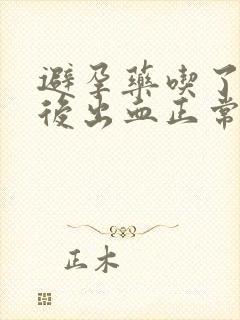 避孕藥喫了
後出血正常
正木